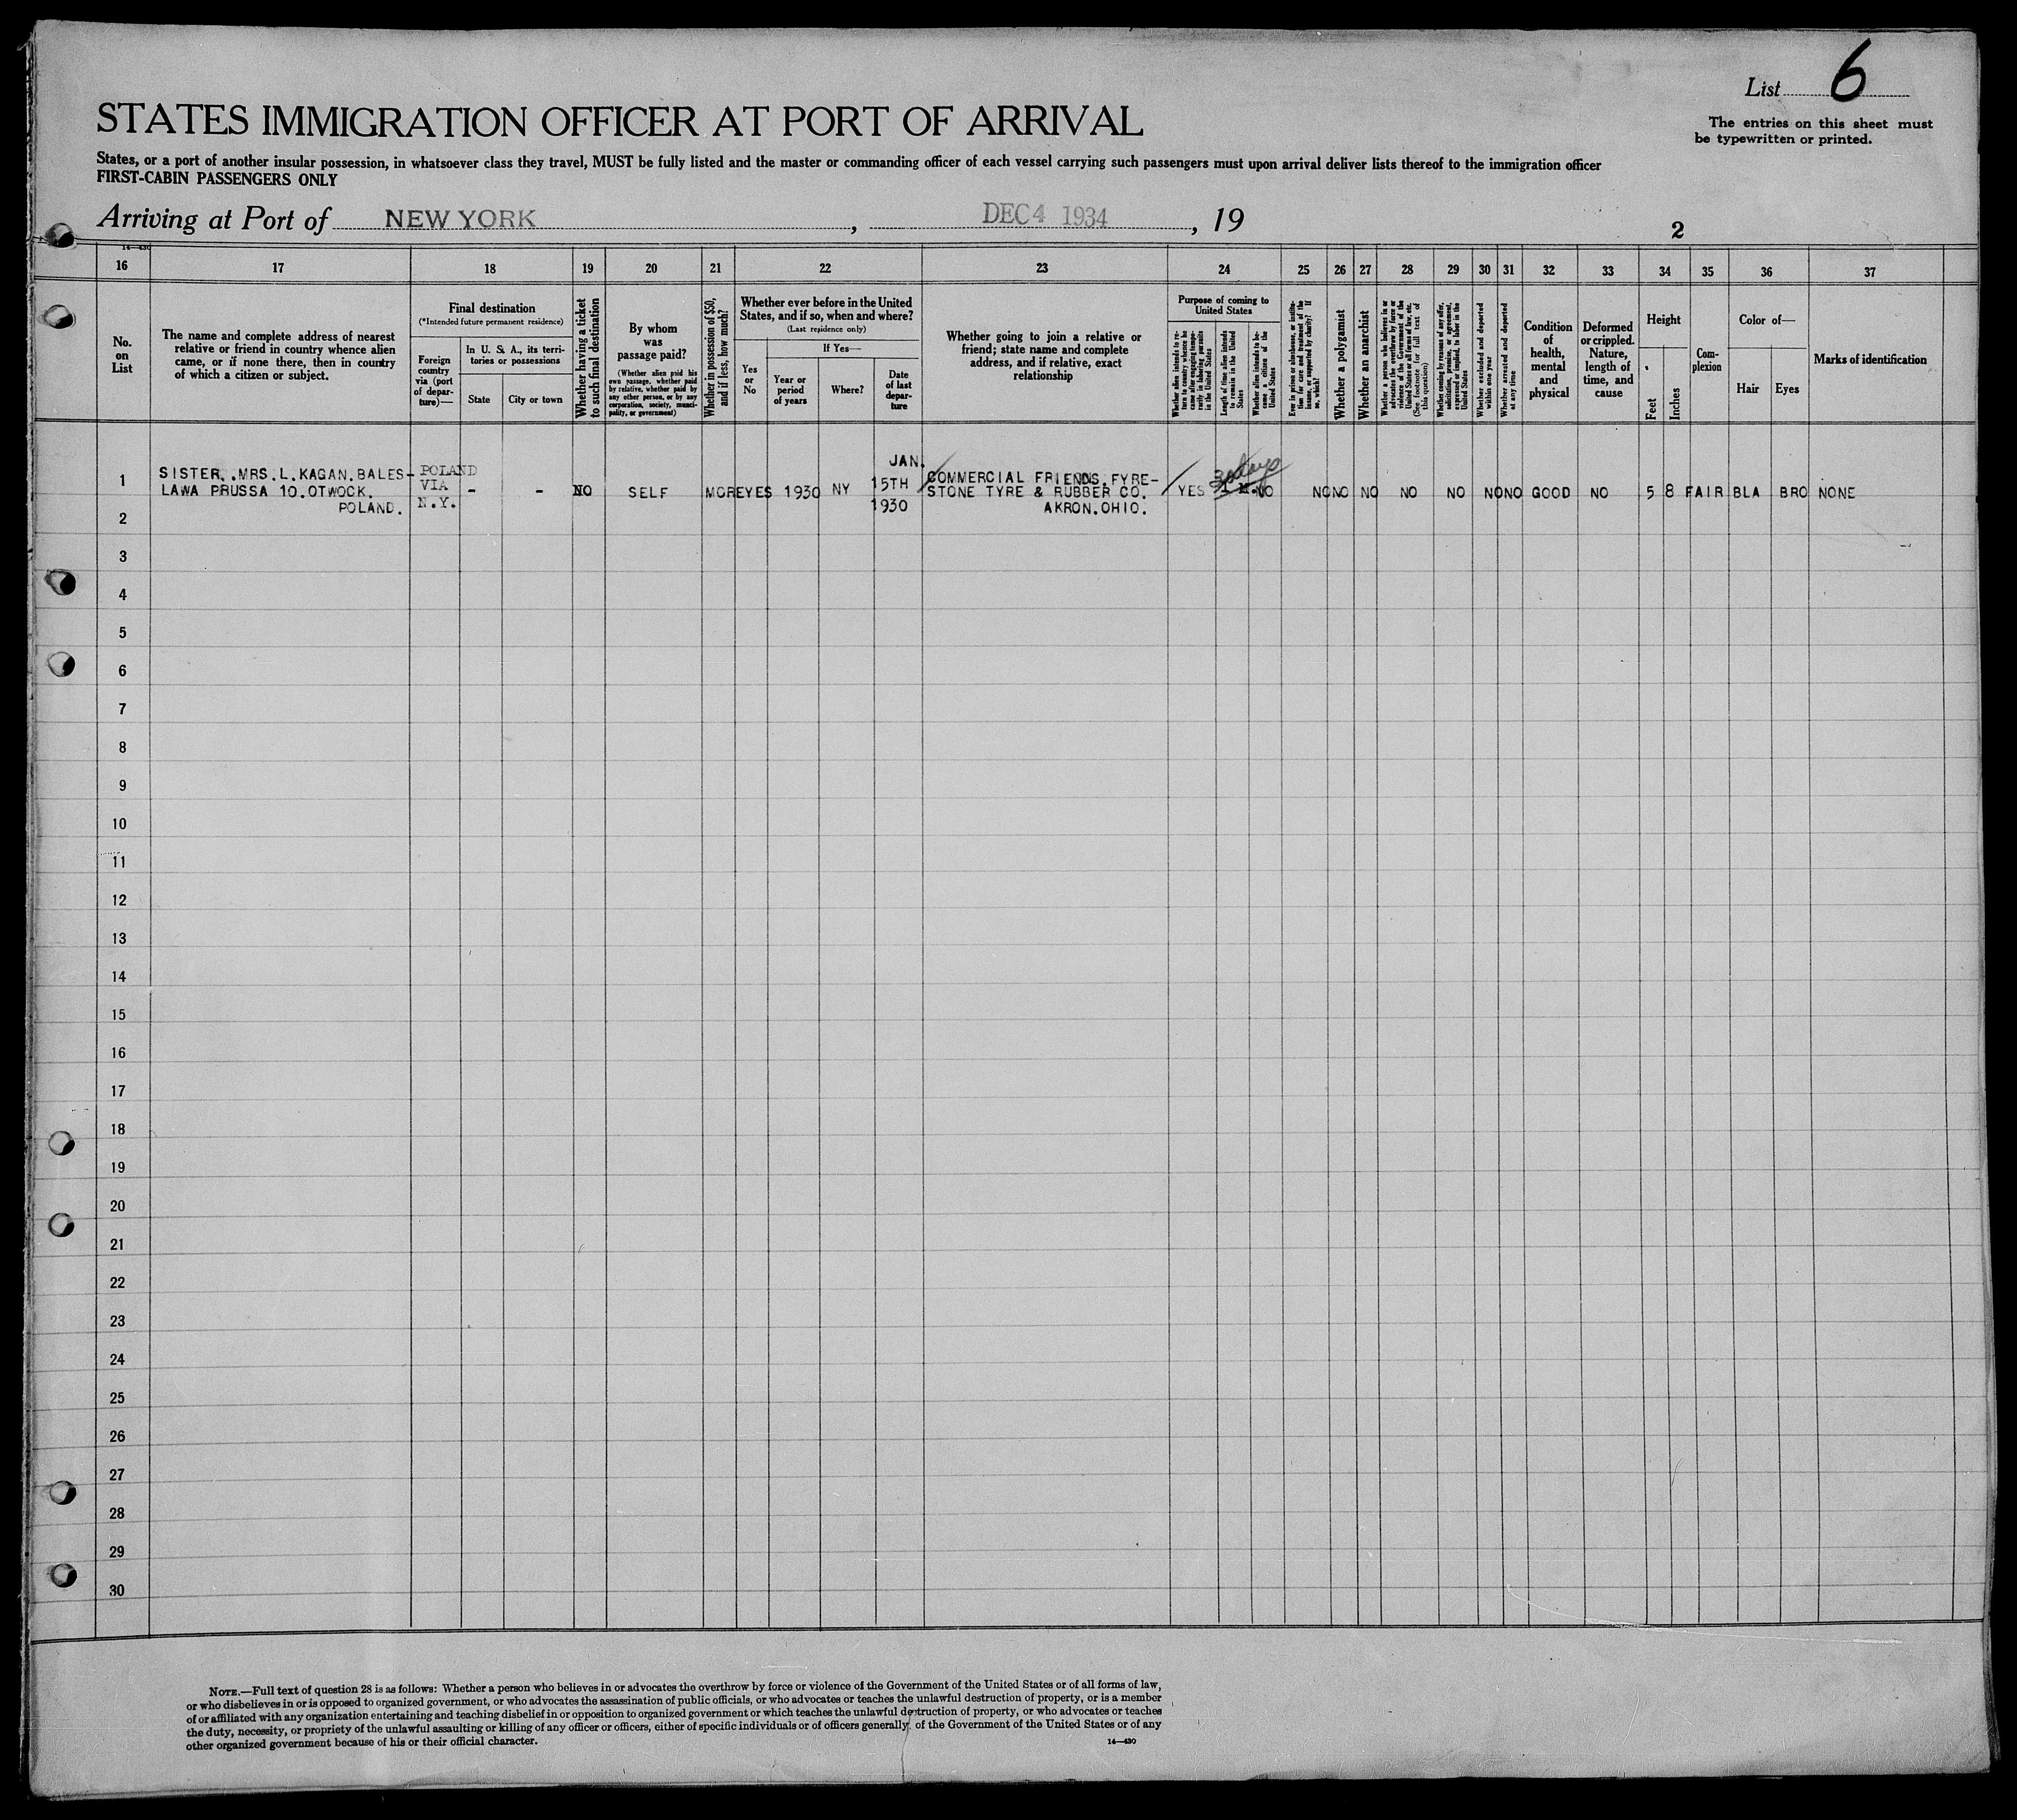 List 6
The entries on this sheet must
be typewritten or printed.
STATES IMMIGRATION OFFICER AT PORT OF ARRIVAL
States, or a port of another insular possession, in whatsoever class they travel, MUST be fully listed and the master or commanding officer of each vessel carrying such passengers must upon arrival deliver lists thereof to the immigration officer
FIRST-CABIN PASSENGERS ONLY
Arriving at Port of NEW YORK , DEC 4 1934 , 19
2
14—430
16 17 18 19 20 21 22 23 24 25 26 27 28 29 30 31 32 33 34 35 36 37
No.
on
List
The name and complete address of nearest
relative or friend in country whence alien
came, or if none there, then in country
of which a citizen or subject.
Final destination
(*Intended future permanent residence)
Foreign
country
via (port
of depar-
ture)—
In U. S. A., its terri-
tories or possessions
State
City or town
Whether having a ticket
to such final destination
By whom
was
passage paid?
(Whether alien paid his
own passage, whether paid
by relative, whether paid by
any other person, or by any
corporation, society, munici-
pality, or government)
Whether in possession of $50,
and if less, how much?
Whether ever before in the United
States, and if so, when and where?
(Last residence only)
Yes
or
No
If Yes—
Year or
period
of years
Where?
Date
of last
depar-
ture
Whether going to join a relative or
friend; state name and complete
address, and if relative, exact
relationship
Purpose of coming to
United States
Whether alien intends to re-
turn to country whence he
came after engaging tempo-
rarily in laboring pursuits
in the United States
Length of time alien intends
to remain in the United
States
Whether alien intends to be-
come a citizen of the
United States
Ever in prison or almshouse, or institu-
tion for care and treatment of the
insane, or supported by charity? If
so, which?
Whether a polygamist
Whether an anarchist
Whether a person who believes in or
advocates the overthrow by force or
violence of the Government of the
United States or all forms of law, etc.
(See footnote for full text of
this question)
Whether coming by reasons of any offer,
solicitation, promise, or agreement,
expressed or implied, to labor in the
United States
Whether excluded and deported
within one year
Whether arrested and deported
at any time
Condition
of
health,
mental
and
physical
Deformed
or crippled.
Nature,
length of
time, and
cause
Height
Feet
Inches
Com-
plexion
Color of—
Hair
Eyes
Marks of identification
JAN.
1 SISTER..MRS.L.KAGAN.BALES- POLAND
LAWA PRUSSA 10.OTWOCK. VIA - - NO SELF MORE YES 1930 NY 15TH COMMERCIAL FRIENDS.FYRE- STONE TYRE & RUBBER CO. YES NO NO NO NO NO NO NO NO GOOD NO 5 8 FAIR BLA BRO NONE
POLAND. N.Y. 1930 AKRON.OHIO.
2
3
4
5
6
7
8
9
10
11
12
13
14
15
16
17
18
19
20
21
22
23
24
25
26
27
28
29
30
NOTE.—Full text of question 28 is as follows: Whether a person who believes in or advocates the overthrow by force or violence of the Government of the United States or of all forms of law,
or who disbelieves in or is opposed to organized government, or who advocates the assassination of public officials, or who advocates or teaches the unlawful destruction of property, or is a member
of or affiliated with any organization entertaining and teaching disbelief in or opposition to organized government or which teaches the unlawful destruction of property, or who advocates or teaches
the duty, necessity, or propriety of the unlawful assaulting or killing of any officer or officers, either of specific individuals or of officers generally, of the Government of the United States or of any
other organized government because of his or their official character.
14—430